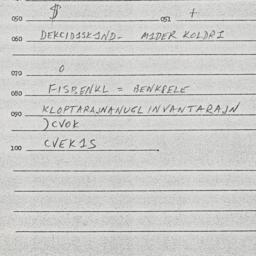 050 $ 051 +
060 DEKCIDISKIND- MIDER KOLDRI
070 0
080 FISBENKL = BENKBELE
090 KLOPTARAJNANUGL INVANTARAJN
)CVOK
100 CVEKIS